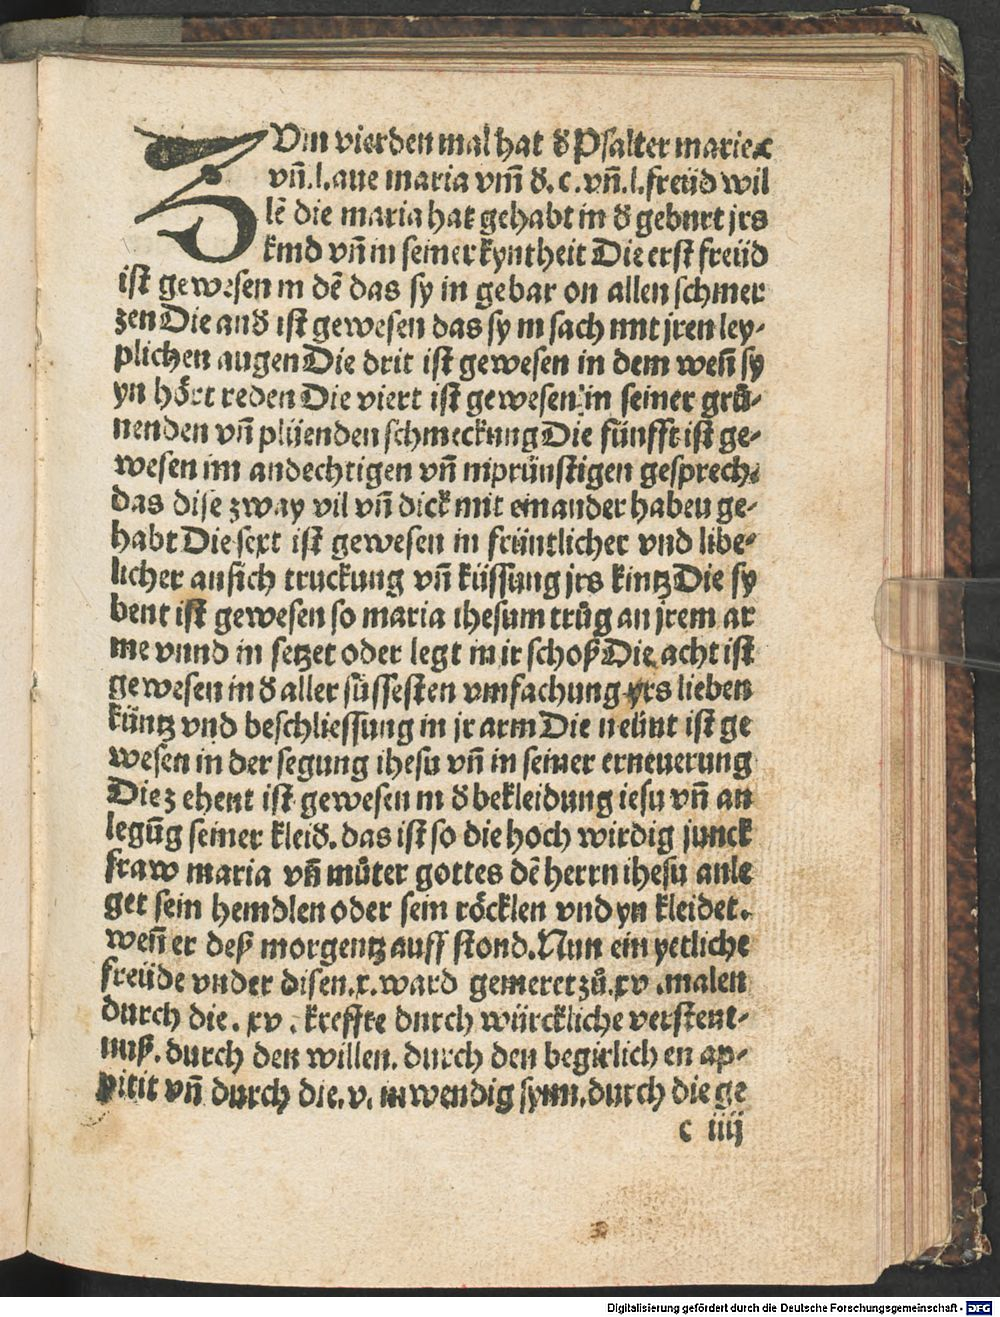 ZUm vierden mal hat d̕ Psalter marie .c
vn̄. l. aue maria vm̄ d̕. c. vn̄. l. freüd wil
lē die maria hat gehabt in d̕ geburt jrs
kind vn̄ in seiner kyntheit Die erst freüd
ist gewesen in dē das sy in gebar on allen schmer
zen Die and̕ ist gewesen das sy in sach mit jren ley⸗
plichen augen Die drit ist gewesen in dem wen̄ sy
yn hört reden Die viert ist gewesen in seiner grů⸗
nenden vn̄ plüenden schmeckung Die fünfft ist ge⸗
wesen im andechtigen vn̄ inprünstigen gesprech.
das dise zway vil vn̄ dick mit einander haben ge⸗
habt Die sext ist gewesen in früntlicher vnd libe⸗
licher ansich truckung vn̄ küssung jrs kintz Die sy
bent ist gewesen so maria ihesum trůg an jrem ar
me vnnd in setzet oder legt in ir schoß Die acht ist
gewesen in d̕ aller süssesten vmfachung yrs lieben
küntz vnd beschliessung in jr arm Die neünt ist ge
wesen in der segung ihesu vn̄ in seiner erneuerung
Die z ehent ist gewesen in d̕ bekleidung iesu vn̄ an
legūg seiner kleid̕. das ist so die hoch wirdig junck
fraw maria vn̄ můter gottes dē herrn ihesu anle
get sein hemdlen oder sein röcklen vnd yn kleidet.
wen̄ er deß morgentz auff stond. Nun ein yetliche
freüde vnder disen .x. ward gemeret zů .xv. malen
durch die .xv. kreffte durch würckliche verstent⸗
nuß. durch den willen. durch den begirlich en ap⸗
pitit vn̄ durch die .v. inwendig synn. durch die ge
c iiij
Digitalisierung gefördert durch die Deutsche Forschungsgemeinschaft - DFG